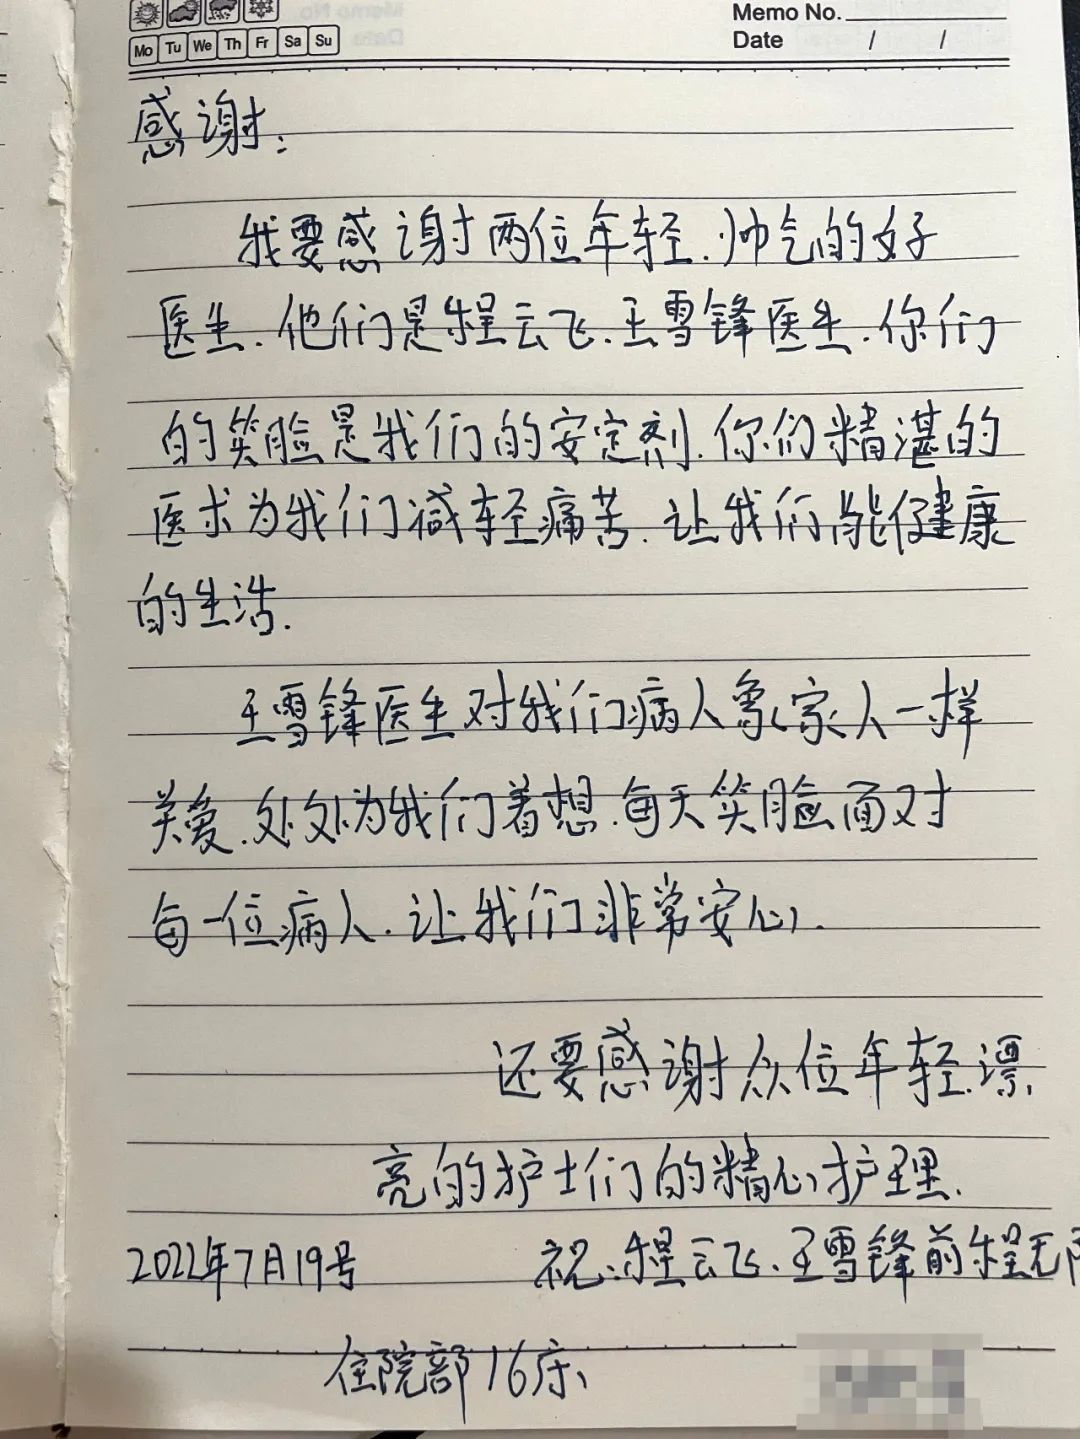 Memo No.
Mo Tu We Th Fr Sa Su
Date / /
感谢:
我要感谢两位年轻.帅气的好
医生.他们是程云飞.王雪锋医生.你们
的笑脸是我们的安定剂.你们精湛的
医术为我们减轻痛苦.让我们能健康
的生活.
王雪锋医生对我们病人象家人一样
关爱.处处为我们着想.每天笑脸面对
每一位病人.让我们非常安心.
还要感谢众位年轻.漂
亮的护士们的精心护理.
2022年7月19号
祝:程云飞.王雪锋前程无
住院部16床